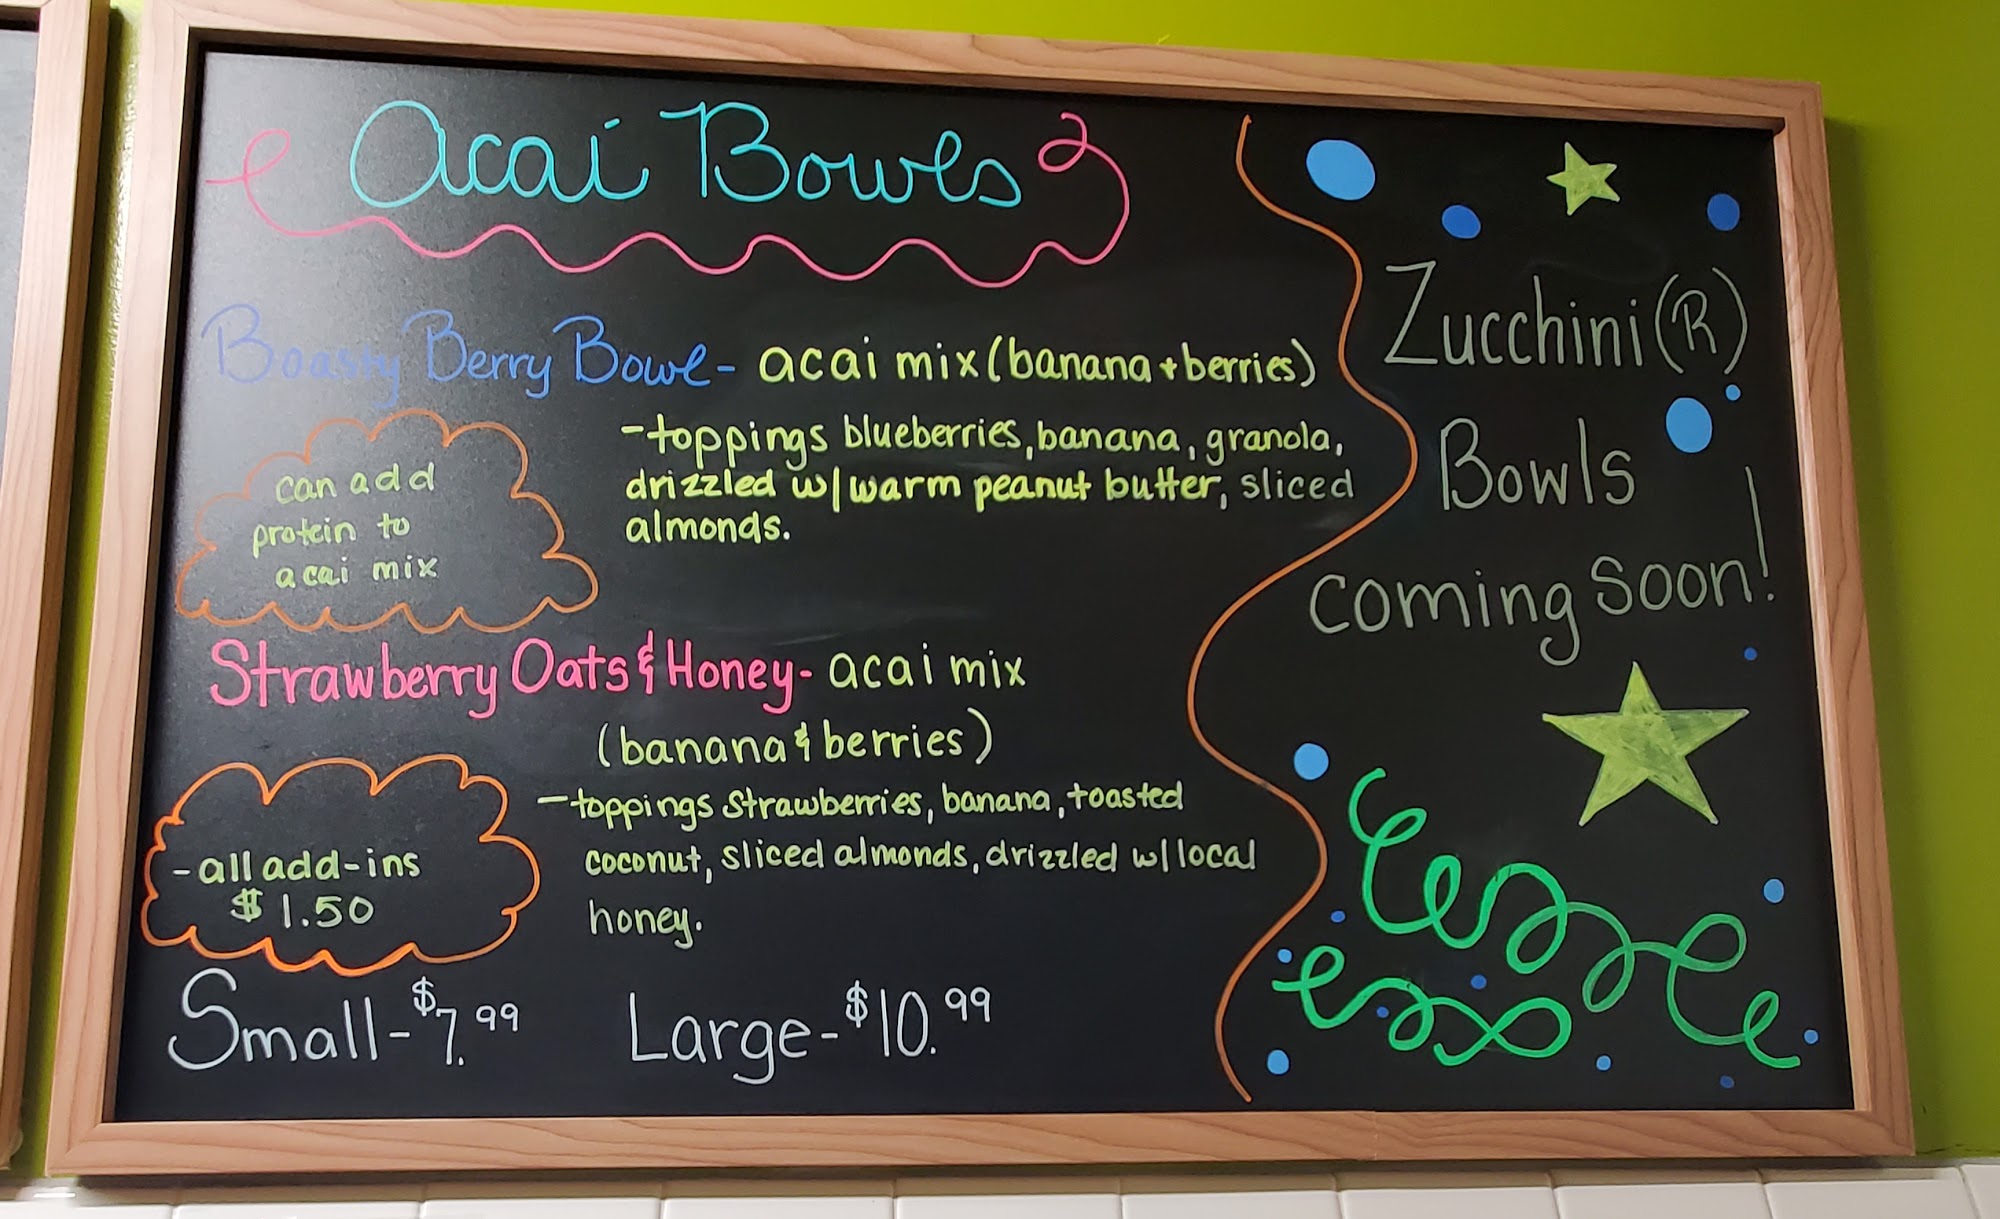 Acai Bowls
Boasty Berry Bowl- acai mix (banana + berries)
-toppings blueberries, banana, granola,
drizzled w/ warm peanut butter, sliced
almonds.
can add
protein to
acai mix
Strawberry Oats & Honey- acai mix
(banana & berries)
-toppings strawberries, banana, toasted
coconut, sliced almonds, drizzled w/ local
honey.
-all add-ins
$1.50
Small-$7.99 Large-$10.99
Zucchini(R)
Bowls
coming soon!